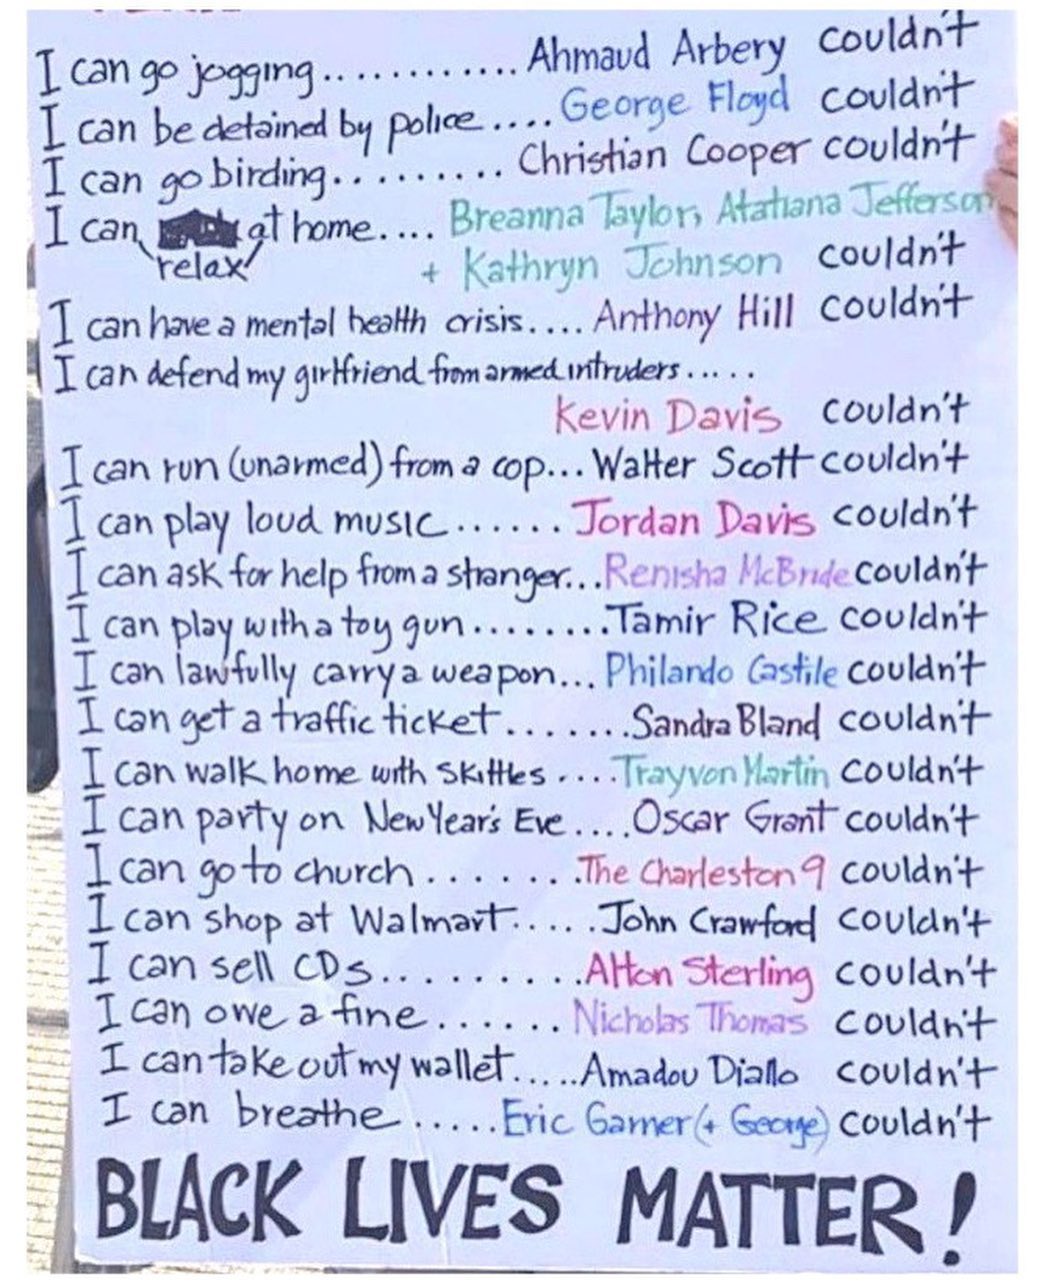 I can go jogging............ Ahmaud Arbery couldn't
I can be detained by police.... George Floyd couldn't
I can go birding......... Christian Cooper couldn't
I can relax at home.... Breanna Taylor, Atatiana Jefferson
+ Kathryn Johnson couldn't
I can have a mental health crisis.... Anthony Hill couldn't
I can defend my girlfriend from armed intruders.....
Kevin Davis couldn't
I can run (unarmed) from a cop... Walter Scott couldn't
I can play loud music...... Jordan Davis couldn't
I can ask for help from a stranger... Renisha McBride couldn't
I can play with a toy gun........ Tamir Rice couldn't
I can lawfully carry a weapon... Philando Castile couldn't
I can get a traffic ticket....... Sandra Bland couldn't
I can walk home with skittles.... Trayvon Martin couldn't
I can party on New Year's Eve.... Oscar Grant couldn't
I can go to church....... The Charleston 9 couldn't
I can shop at Walmart..... John Crawford couldn't
I can sell CDs.......... Alton Sterling couldn't
I can owe a fine....... Nicholas Thomas couldn't
I can take out my wallet..... Amadou Diallo couldn't
I can breathe..... Eric Garner (+ George) couldn't
BLACK LIVES MATTER!